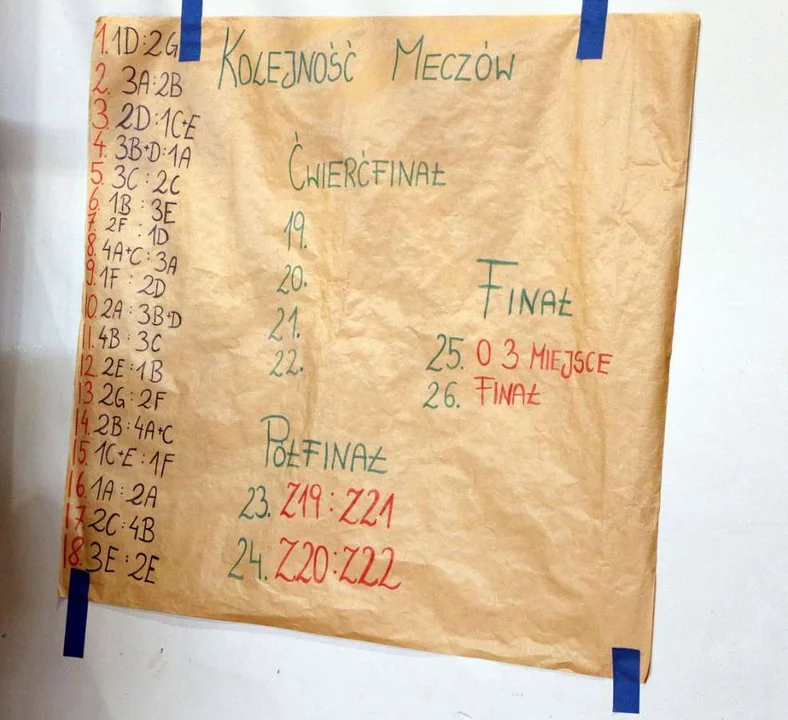 Kolejność Meczów
1. 1D:2G
2. 3A:2B
3. 2D:1C+E
4. 3B+D:1A
5. 3C:2C
6. 1B:3E
7. 2F:1D
8. 4A+C:3A
9. 1F:2D
10. 2A:3B+D
11. 4B:3C
12. 2E:1B
13. 2G:2F
14. 2B:4A+C
15. 1C+E:1F
16. 1A:2A
17. 2C:4B
18. 3E:2E
Ćwierćfinał
19.
20.
21.
22.
Półfinał
23. Z19:Z21
24. Z20:Z22
Finał
25. O 3 MIEJSCE
26. FINAŁ